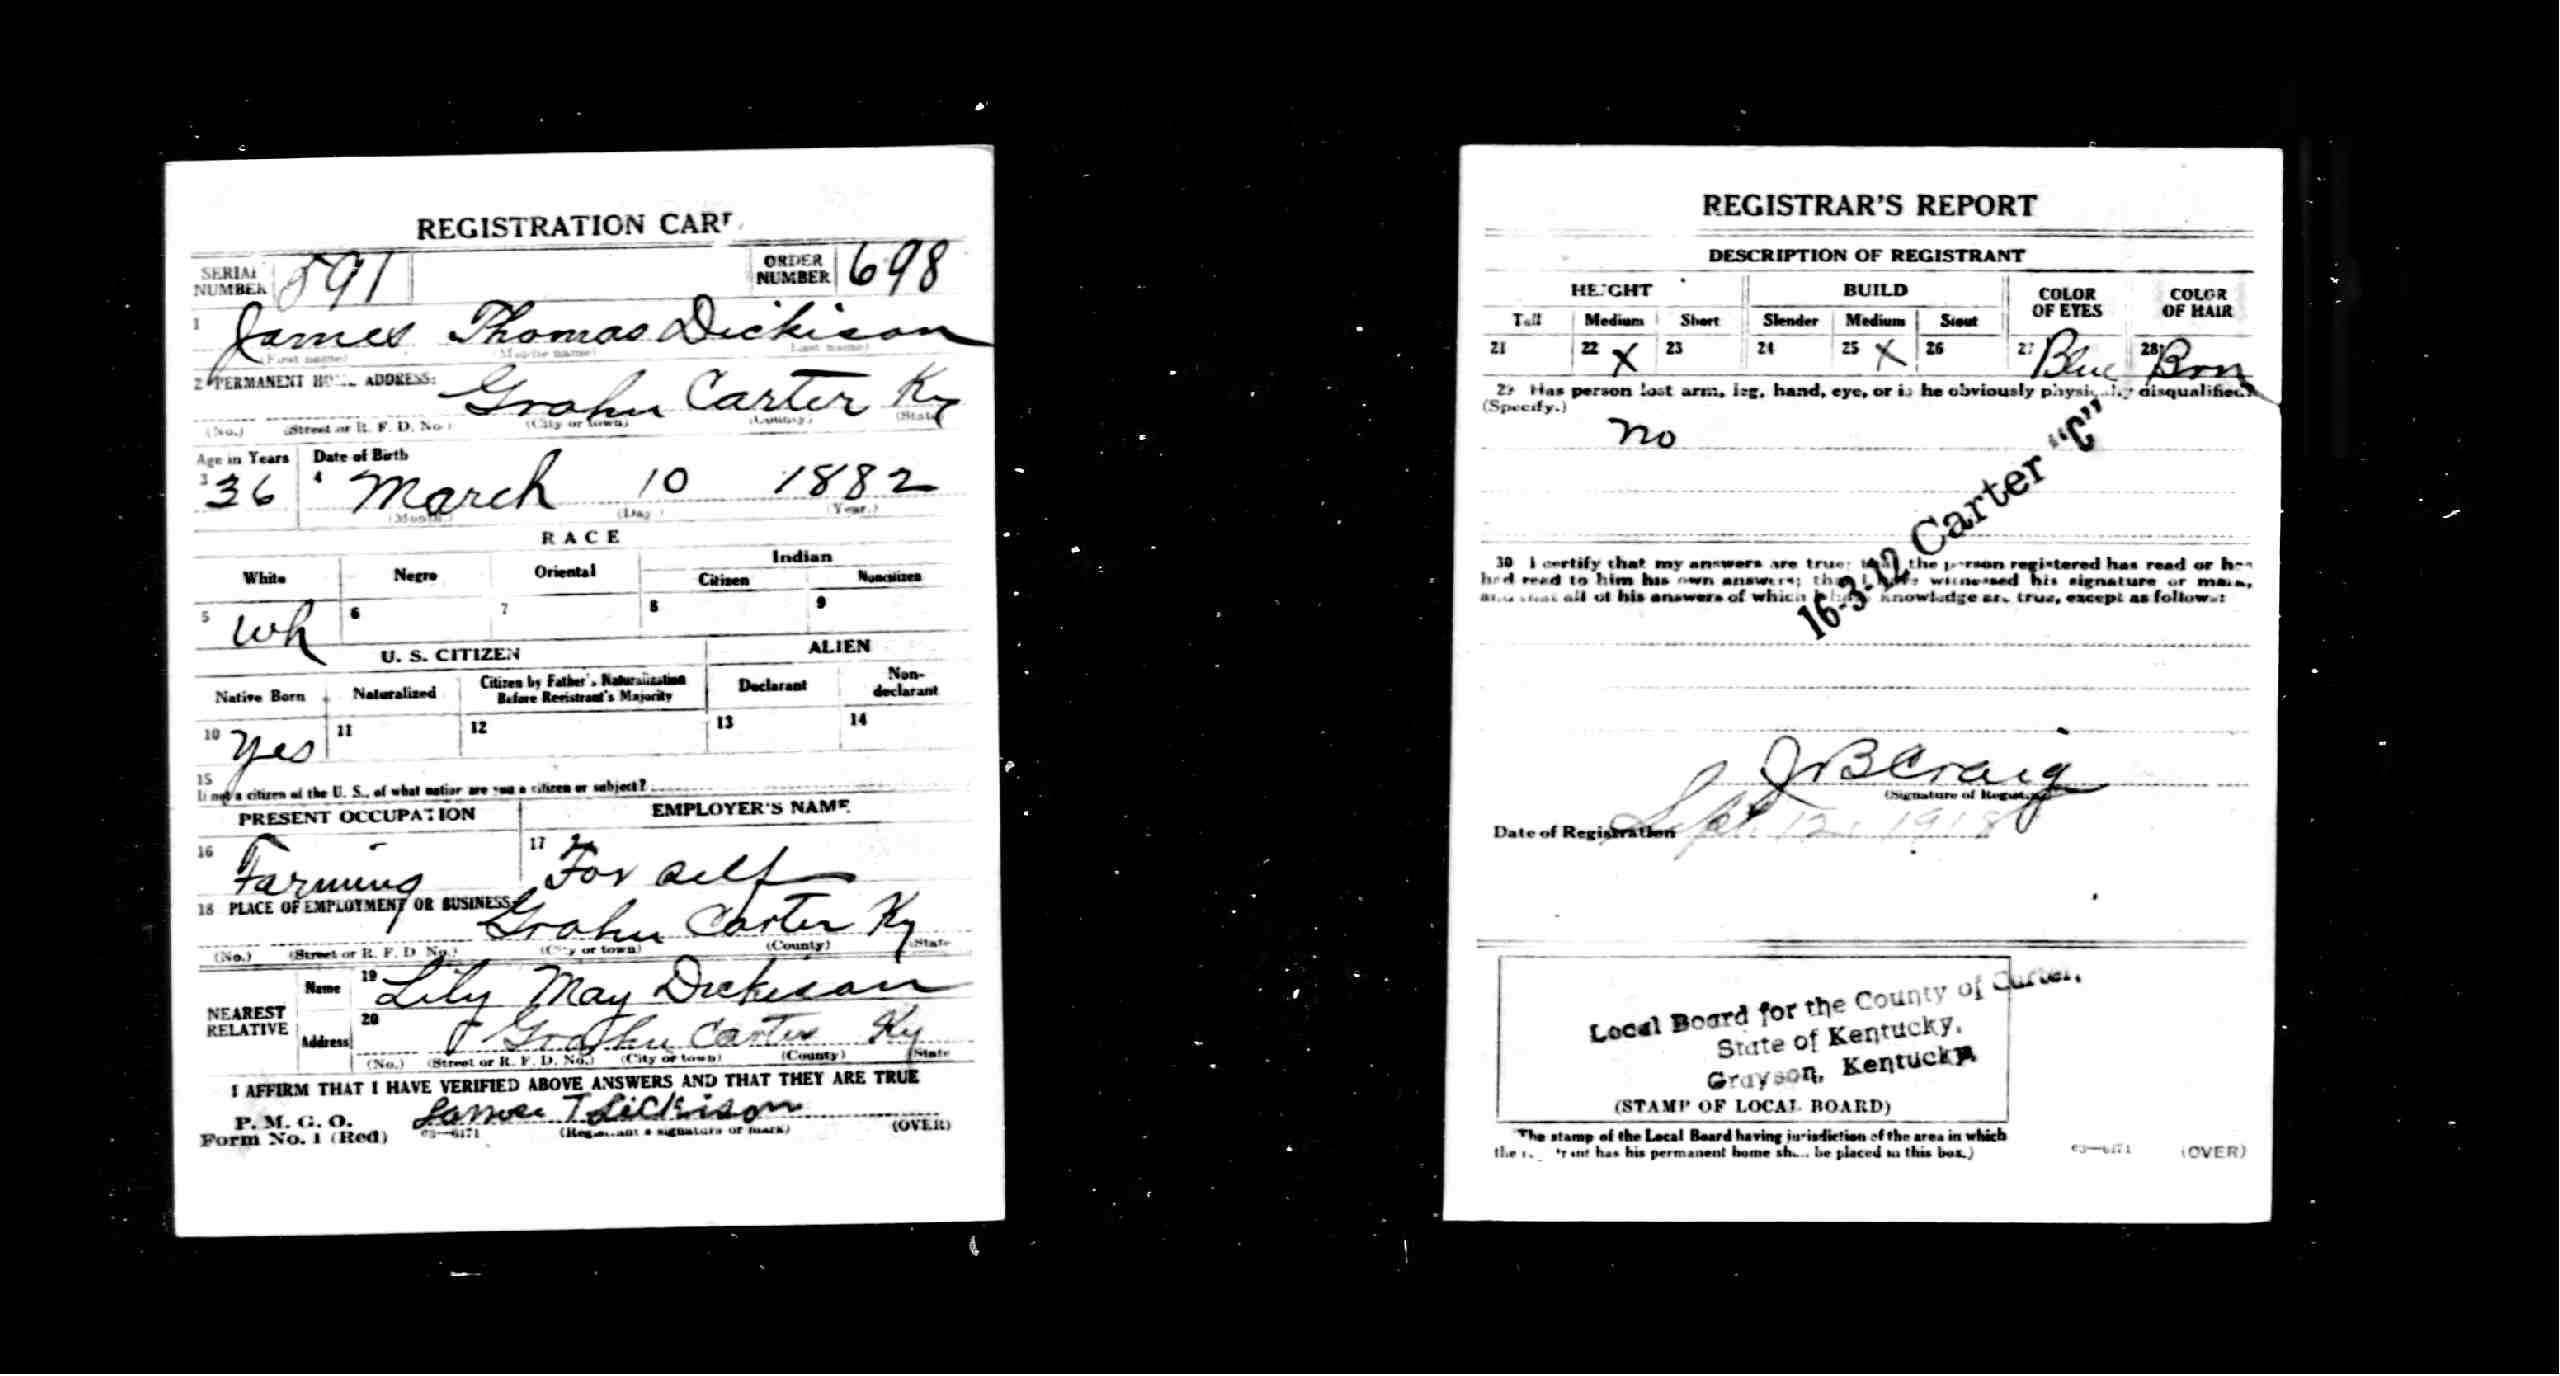 REGISTRATION CARD
SERIAL NUMBER 591 ORDER NUMBER 698
1 James Thomas Dickison
(First name) (Middle name) (Last name)
2 PERMANENT HOME ADDRESS:
Grahn Carter Ky
(No.) (Street or R. F. D. No.) (City or town) (County) (State)
Age in Years Date of Birth
3 36 4 March 10 1882
(Month.) (Day.) (Year.)
RACE
White Negro Oriental Indian
Citizen Noncitizen
5 Wh 6 7 8 9
U. S. CITIZEN ALIEN
Native Born Naturalized Citizen by Father's Naturalization Before Registrant's Majority Declarant Non-declarant
10 Yes 11 12 13 14
15
If not a citizen of the U. S., of what nation are you a citizen or subject?
PRESENT OCCUPATION EMPLOYER'S NAME
16 Farming 17 For self
18 PLACE OF EMPLOYMENT OR BUSINESS:
Grahn Carter Ky
(No.) (Street or R. F. D. No.) (City or town) (County) (State
NEAREST RELATIVE
Name 19 Lily May Dickison
Address 20 Grahn Carter Ky
(No.) (Street or R. F. D. No.) (City or town) (County) (State
I AFFIRM THAT I HAVE VERIFIED ABOVE ANSWERS AND THAT THEY ARE TRUE
P. M. G. O.
Form No. 1 (Red) 03—6171 James T Dickison
(Registrant's signature or mark) (OVER)
REGISTRAR'S REPORT
DESCRIPTION OF REGISTRANT
HEIGHT BUILD COLOR OF EYES COLOR OF HAIR
Tall Medium Short Slender Medium Stout
21 22 X 23 24 25 X 26 27 Blue 28 Brn
29 Has person lost arm, leg, hand, eye, or is he obviously physically disqualified?
(Specify.)
no
16-3-12 Carter "C"
30 I certify that my answers are true; that the person registered has read or has
had read to him his own answers; that I have witnessed his signature or mark,
and that all of his answers of which I have knowledge are true, except as follows:
J B Craig
(Signature of Registrar)
Date of Registration Sept. 12, 1918
Local Board for the County of Carter,
State of Kentucky,
Grayson, Kentucky
(STAMP OF LOCAL BOARD)
(The stamp of the Local Board having jurisdiction of the area in which
the registrant has his permanent home shall be placed in this box.)
03—6171 (OVER)